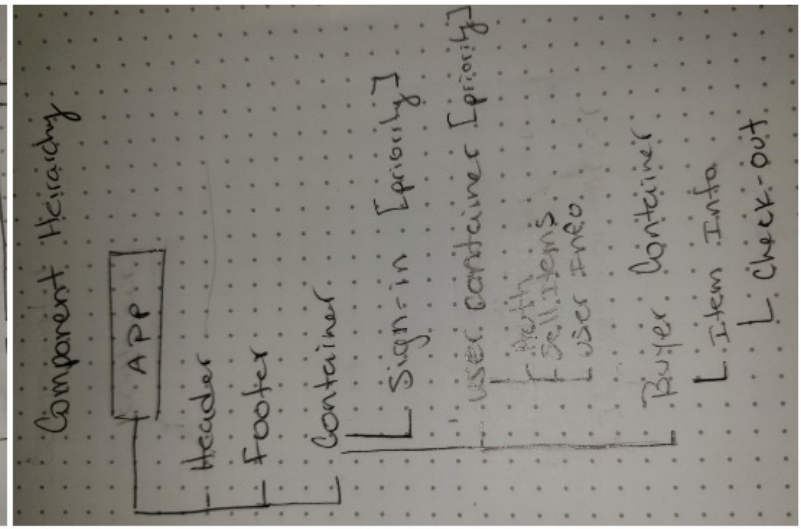 Component Heirarchy
APP
Header
Footer
Container
Sign-in [priority]
user container [priority]
Auth
Sell Items
user Info
Buyer Container
Item Info
Check-out